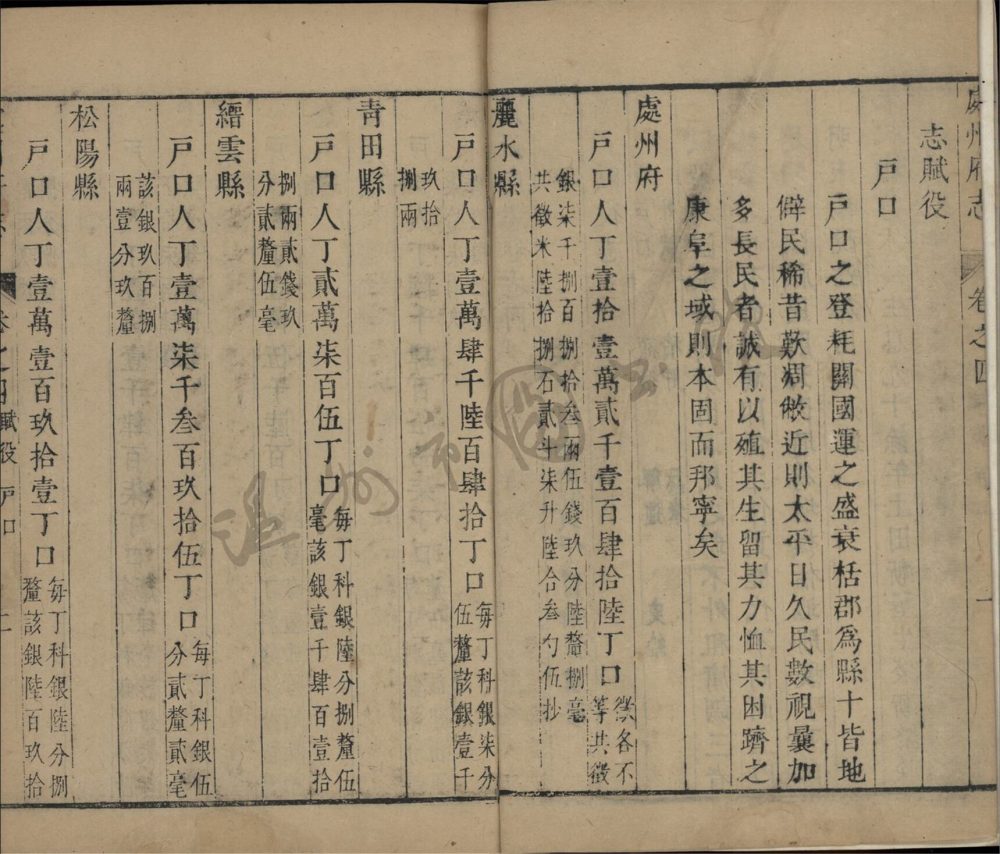 處州府志 卷之四 一
志賦役
戸口
戸口之登耗關國運之盛衰栝郡爲縣十皆地
僻民稀昔歎凋敝近則太平日久民數視曩加
多長民者誠有以殖其生留其力恤其困躋之
康阜之域則本固而邦寧矣
處州府
戸口人丁壹拾壹萬貳千壹百肆拾陸丁口
徵各不
等共徵
銀柒千捌百捌拾叁兩伍錢玖分陸釐捌毫
共徵米陸拾捌石貳斗柒升陸合叁勺伍抄
麗水縣
戸口人丁壹萬肆千陸百肆拾丁口
每丁科銀柒分
伍釐該銀壹千
玖拾
捌兩
青田縣
戸口人丁貳萬柒百伍丁口
每丁科銀陸分捌釐伍
毫該銀壹千肆百壹拾
捌兩貳錢玖
分貳釐伍毫
縉雲縣
戸口人丁壹萬柒千叁百玖拾伍丁口
每丁科銀伍
分貳釐貳毫
該銀玖百捌
兩壹分玖釐
松陽縣
戸口人丁壹萬壹百玖拾壹丁口
每丁科銀陸分捌
釐該銀陸百玖拾
卷之四 賦役 戸口 二
温州市圖書館